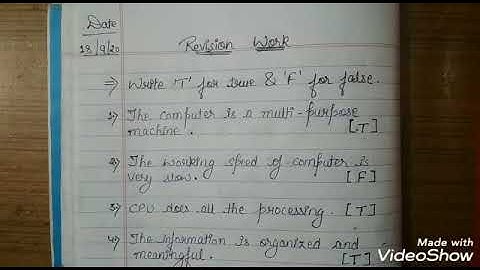 Date
18/9/20
Revision Work
⇒ Write 'T' for true & 'F' for false.
1) The computer is a multi-purpose
machine. [T]
2) The working speed of computer is
very slow. [F]
3) CPU does all the processing. [T]
4) The information is organized and
meaningful. [T]
Made with
VideoShow